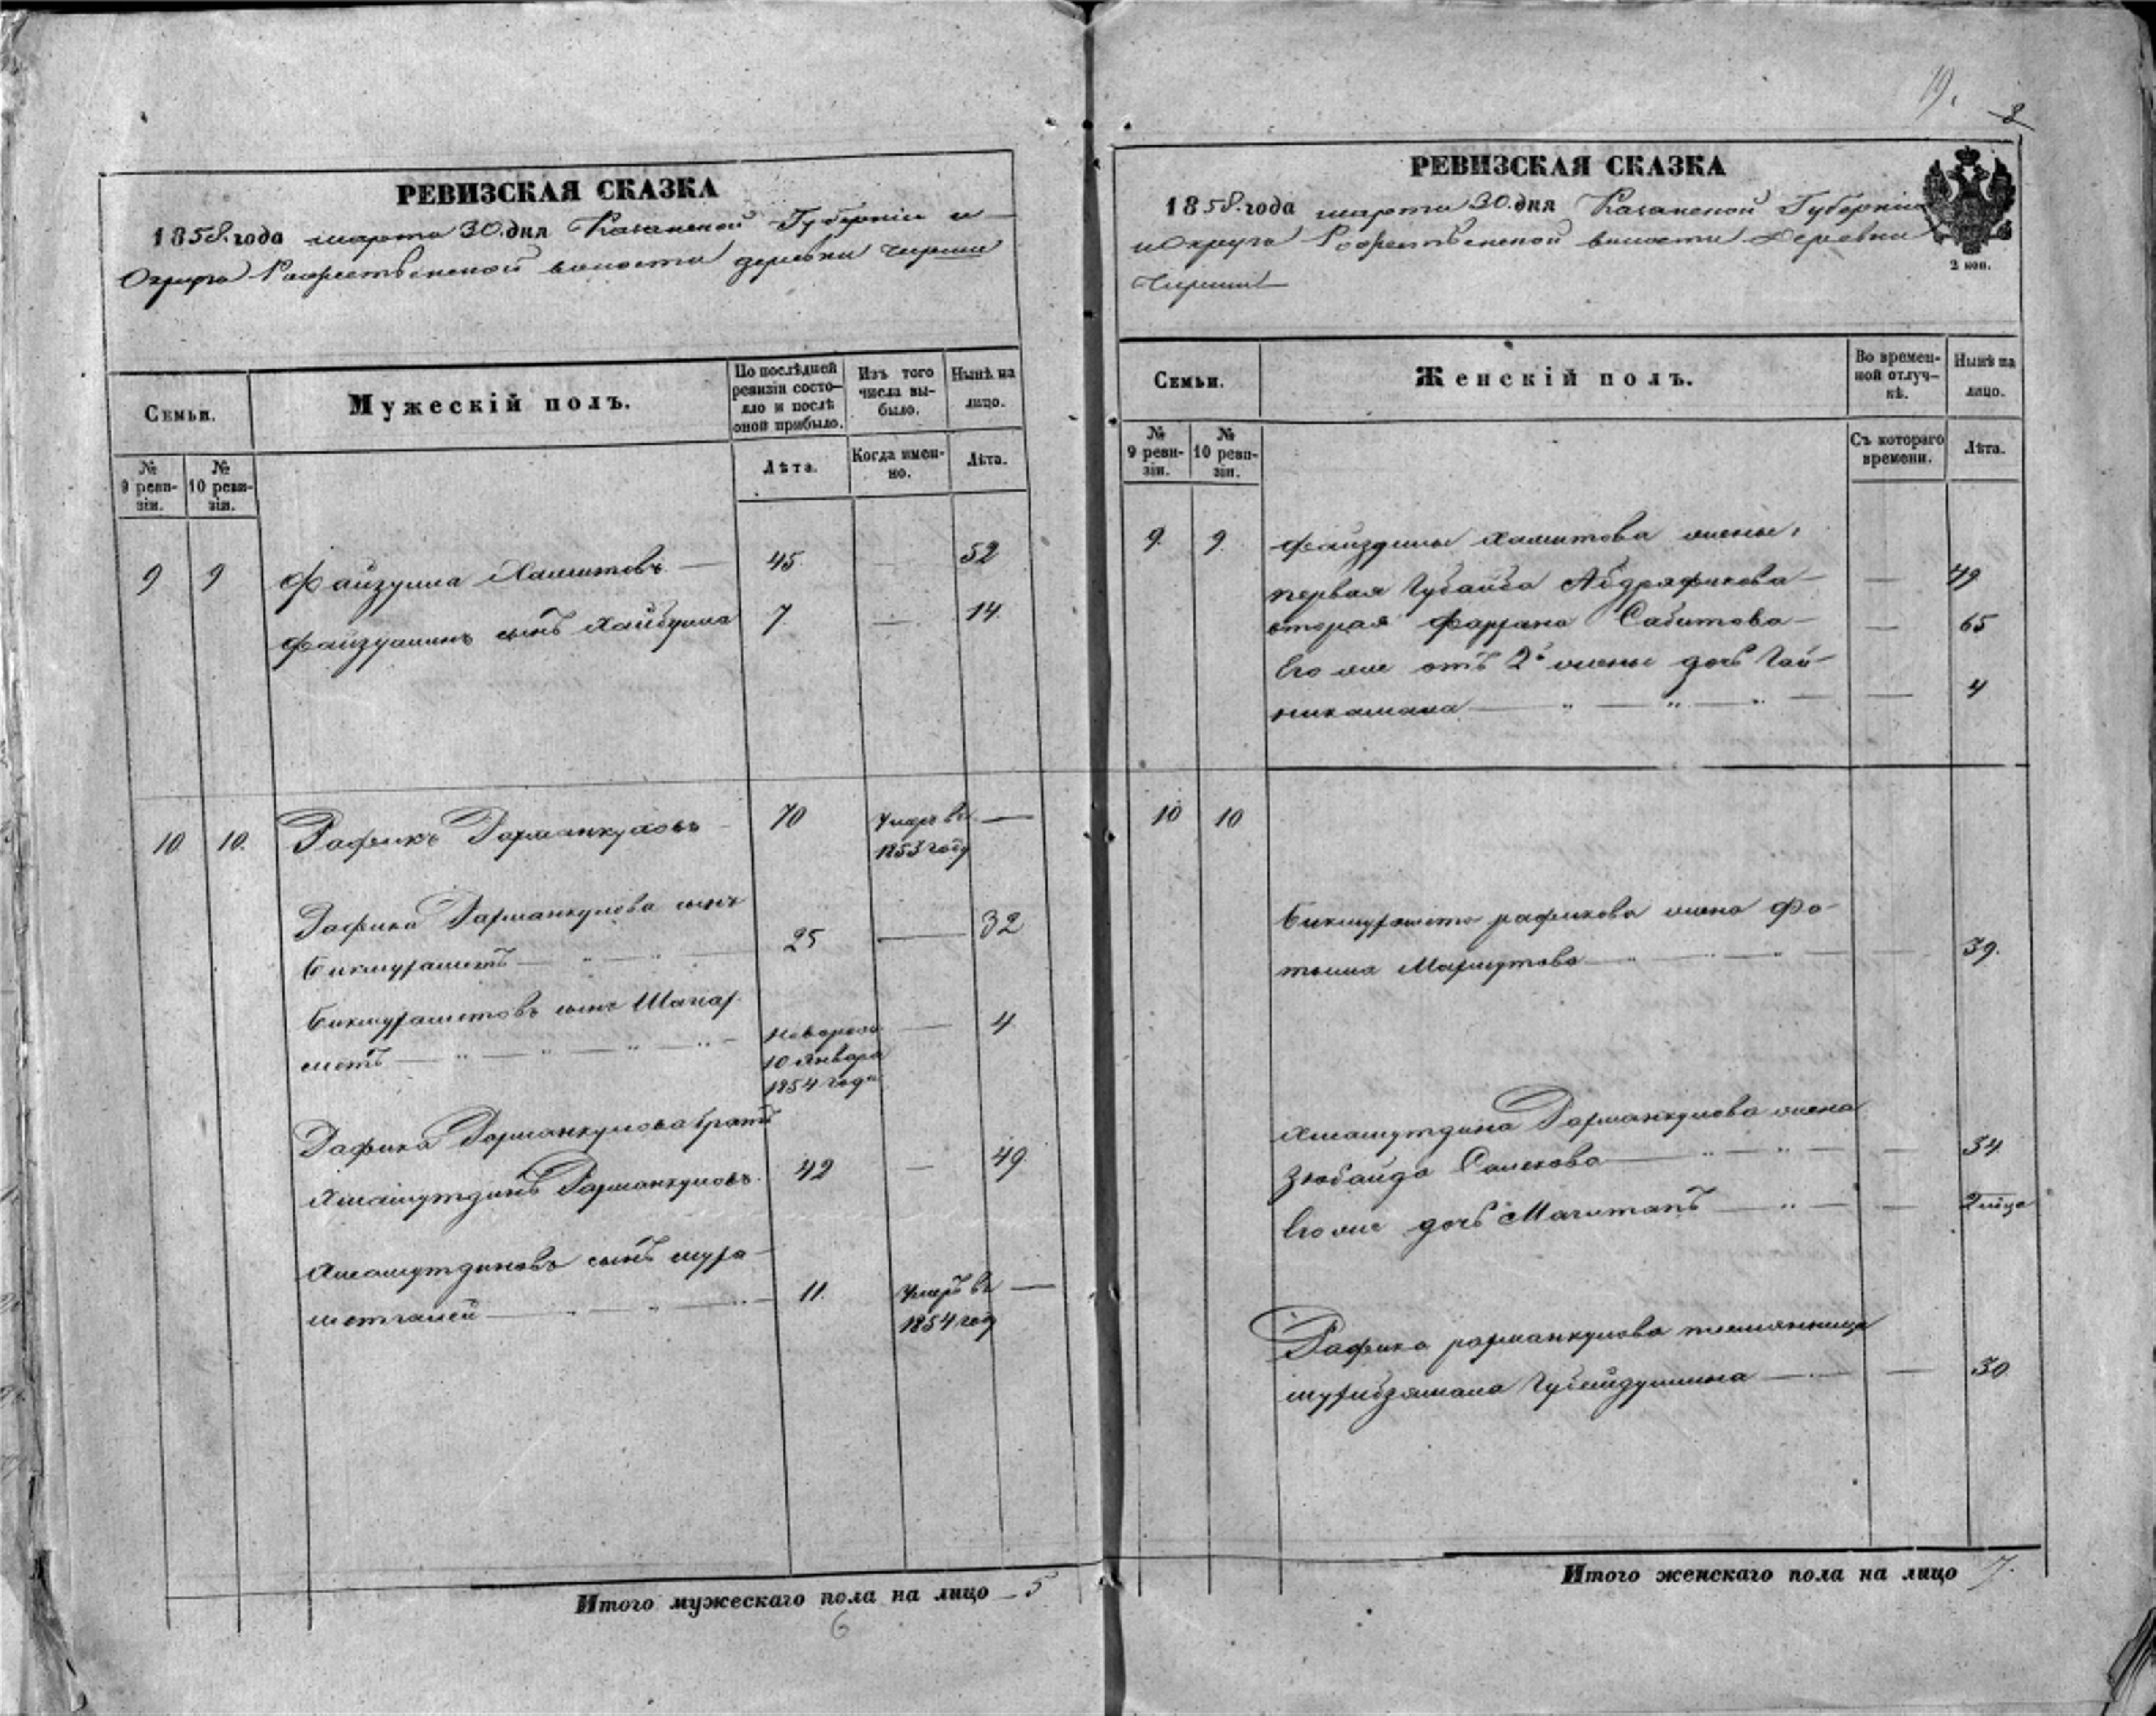 19.
8
РЕВИЗСКАЯ СКАЗКА
1858. года марта 30. дня Казанской Губернiи и
Округа Рождественской волости деревни Чирши
Семьи.
Мужескiй полъ.
По послѣдней ревизiи состо-яло и послѣ оной прибыло.
Изъ того числа вы-было.
Нынѣ на лицо.
№ 9 реви-зiи.
№ 10 реви-зiи.
Лѣта.
Когда имен-но.
Лѣта.
9 9 Файзулла Хамитовъ 45. 52
Файзуллинъ сынъ Хайбулла 7. 14.
10. 10. Рафикъ Юрманкуловъ 70 Умеръ въ
1853 году
Рафика сынъ
Бикмураметъ 25 32
Бикмураметовъ сынъ Шагар
метъ новорож 4
10 Января
1854 года
Рафика братъ
42 49
сынъ мура
метгалей 11. Умеръ въ
1854 год
Итого мужескаго пола на лицо 5
6
РЕВИЗСКАЯ СКАЗКА
1858. года марта 30. дня Казанской Губернiи
и Округа Рождественской волости деревни
Чирши
2 коп.
Семьи.
Женскiй полъ.
Во времен-ной отлуч-кѣ.
Нынѣ на лицо.
№ 9 реви-зiи.
№ 10 реви-зiи.
Съ котораго времени.
Лѣта.
9. 9. Файзуллы Хамитова жены,
первая Губайба Абдряфикова 49
вторая Фархана Сабитова 65
Его же отъ 2й жены дочь Гай-
никамала 4
10 10
Бикмурамета рафикова жена Фа-
тыма Махмутова 39.
жена
Зюбайда Салехова 34
Его же дочь Магитапъ 2 мѣсяца
Рафика племянница
Губейдуллина 30
Итого женскаго пола на лицо 7.